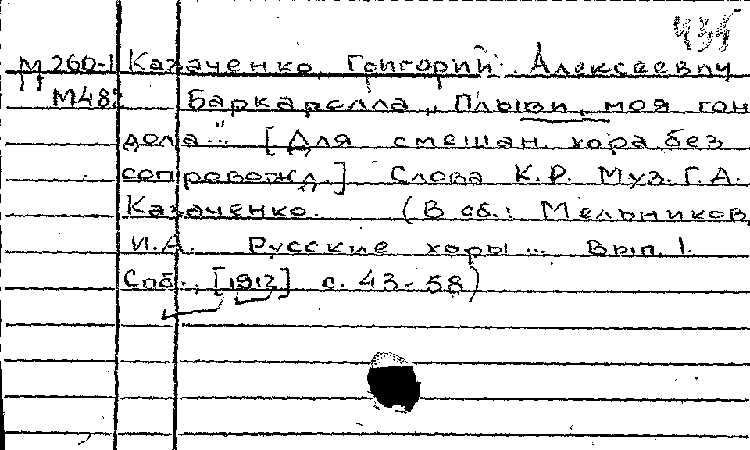 435
М 260-1 Казаченко, Григорий Алексеевич
М48 Баркарелла „Плыви, моя гон
дола..." [Для смешан. хора без
сопровожд.] Слова К.Р. Муз. Г.А.
Казаченко. (В сб.: Мельников,
И.А. Русские хоры... Вып. 1.
Спб., [1912] с. 43-58)